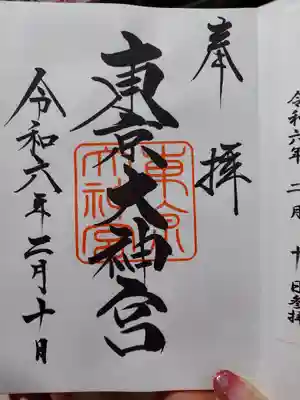 奉拝
東京大神宮
東京大神宮
令和六年二月十日
令和六年 二月 十日参拝